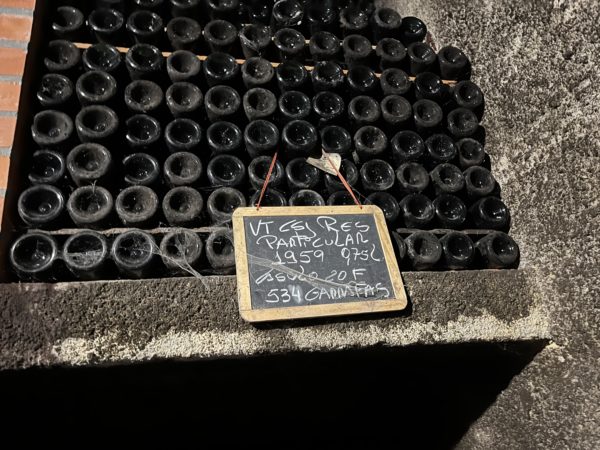 VT CSL RES
PARTICULAR
1959 0,75L
20 F
534 GARRAFAS